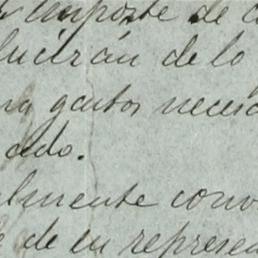 importe de
ducirán de lo
gastos neces
ado.
lmente conv
de su represen